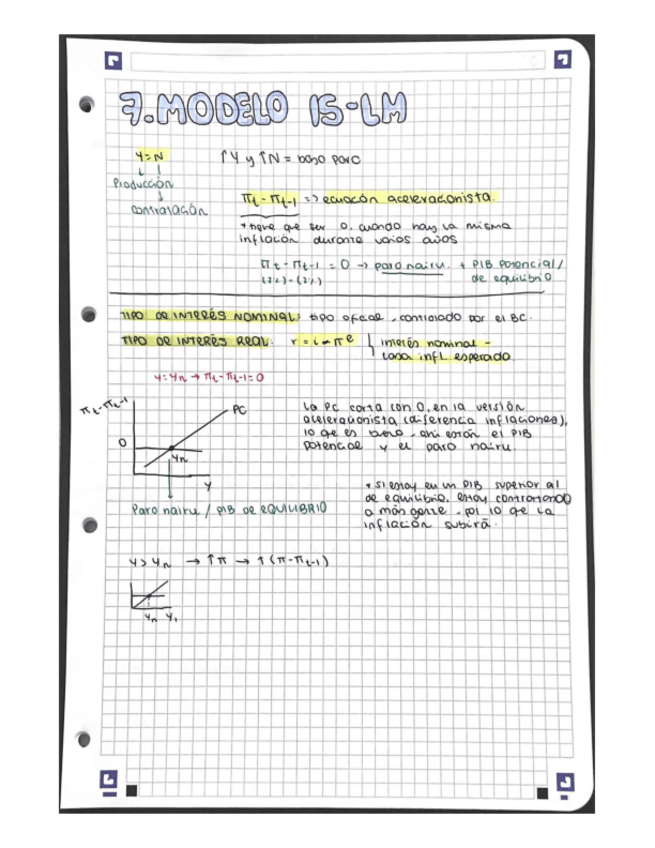 7. MODELO IS-LM
Y=N
↑Y y ↑N = bajo paro
↓ ↓
Producción
↓
contratación
πt - πt-1 => ecuación aceleracionista.
* tiene que ser 0, cuando hay la misma
inflación durante varios años
πt - πt-1 = 0 → paro nairu. + PIB potencial/
de equilibrio
(2%) - (2%)
TIPO DE INTERÉS NOMINAL: tipo oficial, controlado por el BC.
TIPO DE INTERÉS REAL: r = i - πe
interés nominal -
tasa infl. esperada
Y = Yn → πt - πt-1 = 0
πt - πt-1
PC
0
Yn
Y
Paro nairu / PIB DE EQUILIBRIO
La PC corta con 0, en la versión
aceleracionista (diferencia inflaciones),
lo qe es bueno - ahí están el PIB
potencial y el paro nairu.
* si estoy en un PIB superior al
de equilibrio, estoy contratando
a más gente - por lo qe la
inflación subirá.
Y > Yn → ↑π → ↑(π - πt-1)
Yn Y1